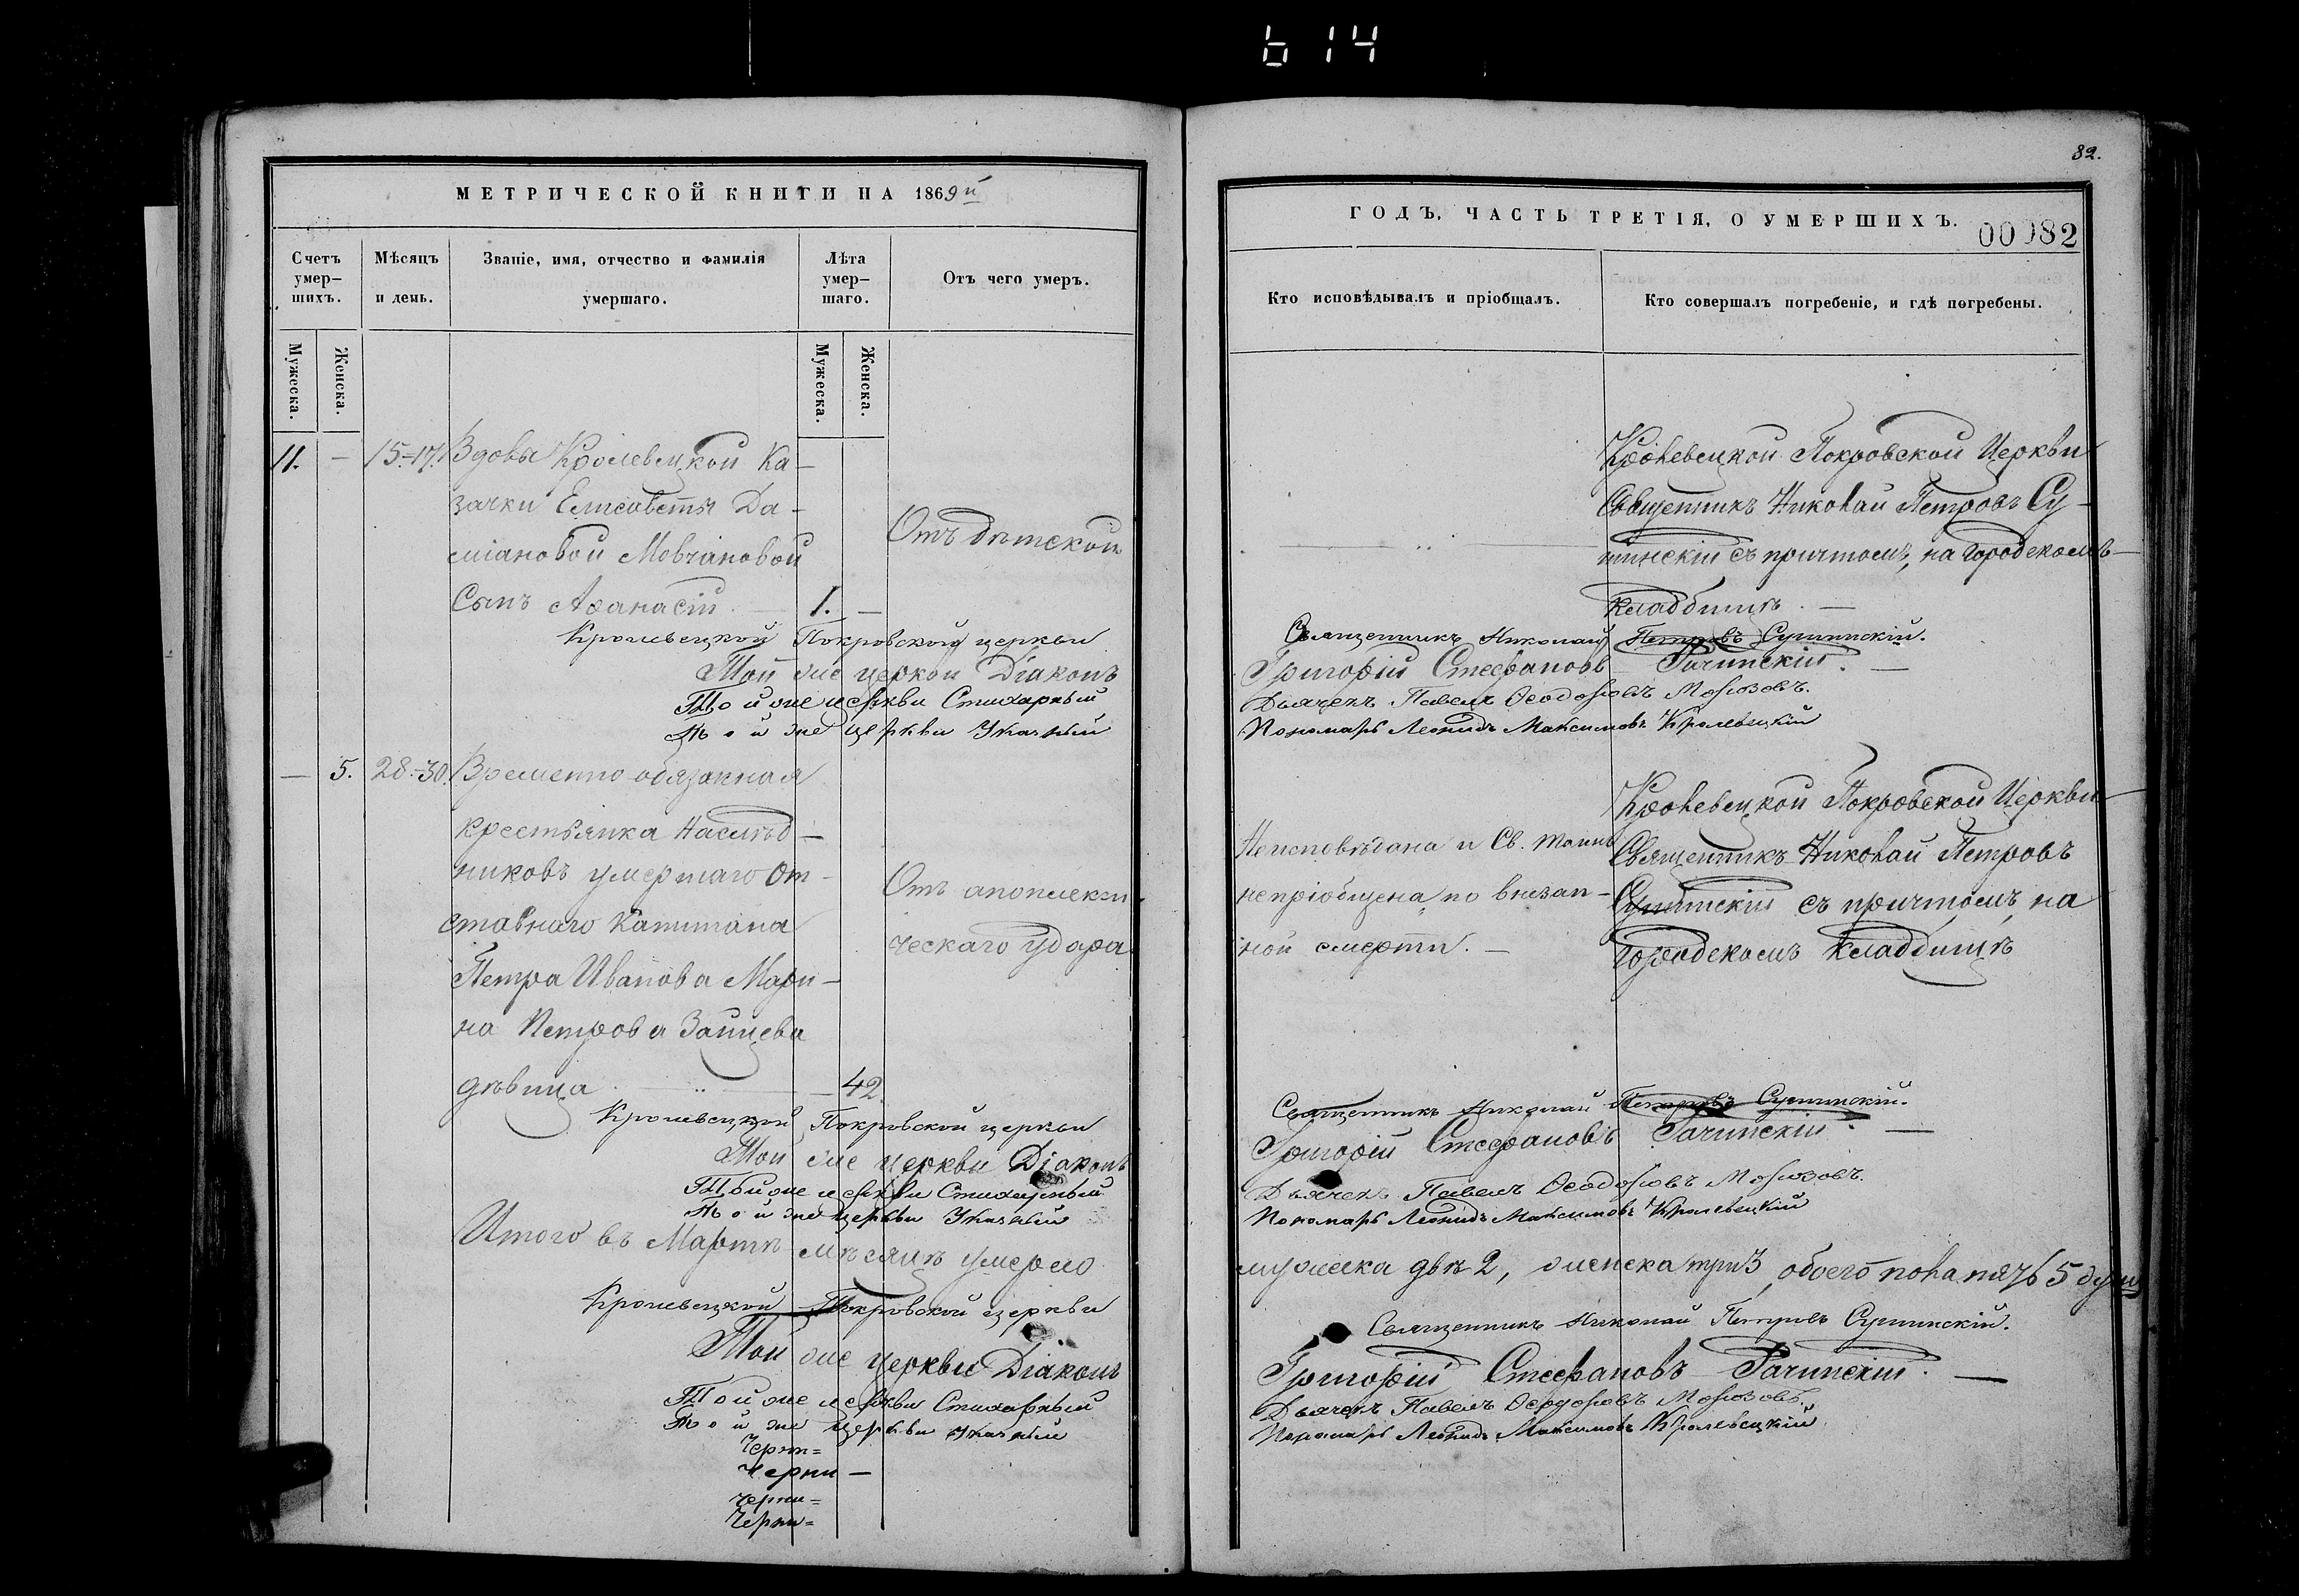 614
МЕТРИЧЕСКОЙ КНИГИ НА 1869й
Счетъ умер-
шихъ.
Мѣсяцъ
и день.
Званіе, имя, отчество и фамилія
умершаго.
Лѣта
умер-
шаго.
Отъ чего умеръ.
Мужеска.
Женска.
Мужеска.
Женска.
11. — 15.-17. Вдовы Кролевецкой Ка-
зачки Елисаветы Да-
міановой Мовчановой
Сынъ Аѳанасій. — 1. —
Отъ дѣтской
Кролевецкой Покровской церкви
Той же церкви Діаконъ
Той же церкви Стихарный
Той же церкви Указный
— 5. 28.-30. Временно-обязанная
крестьянка Наслѣд-
никовъ умершаго От-
ставнаго Капитана
Петра Иванова Мари-
на Петрова Зайцева
дѣвица — 42.
Отъ апоплекси-
ческаго удара
Кролевецкой Покровской церкви
Той же церкви Діаконъ
Той же церкви Стихарный
Той же церкви Указный
Итого въ Мартѣ мѣсяцѣ умерло
Кролевецкой Покровской церкви
Той же церкви Діаконъ
Той же церкви Стихарный
Той же церкви Указный
Черни=
Черни—
Черни=
Черни=
82.
ГОДЪ, ЧАСТЬ ТРЕТІЯ, О УМЕРШИХЪ.
00082
Кто исповѣдывалъ и пріобщалъ.
Кто совершалъ погребеніе, и гдѣ погребены.
Кролевецкой Покровской Церкви
Священникъ Николай Петровъ Су-
шинскій съ причтомъ, на городскомъ
кладбищѣ. —
Священникъ Николай Петровъ Сушинскій.
Григорій Стефановъ Рачинскій. —
Дьячекъ Павелъ Ѳеодоровъ Морозовъ.
Пономарь Леонидъ Максимовъ Кролевецкій
Неисповѣдана и Св. Таинъ
непріобщена, по внезап-
ной смерти. —
Кролевецкой Покровской Церкви
Священникъ Николай Петровъ
Сушинскій съ причтомъ, на
городскомъ кладбищѣ
Священникъ Николай Петровъ Сушинскій.
Григорій Стефановъ Рачинскій. —
Дьячекъ Павелъ Ѳеодоровъ Морозовъ.
Пономарь Леонидъ Максимовъ Кролевецкій
мужеска двѣ 2, женска три 3, обоего пола пять 5 душъ
Священникъ Николай Петровъ Сушинскій.
Григорій Стефановъ Рачинскій. —
Дьячекъ Павелъ Ѳеодоровъ Морозовъ.
Пономарь Леонидъ Максимовъ Кролевецкій